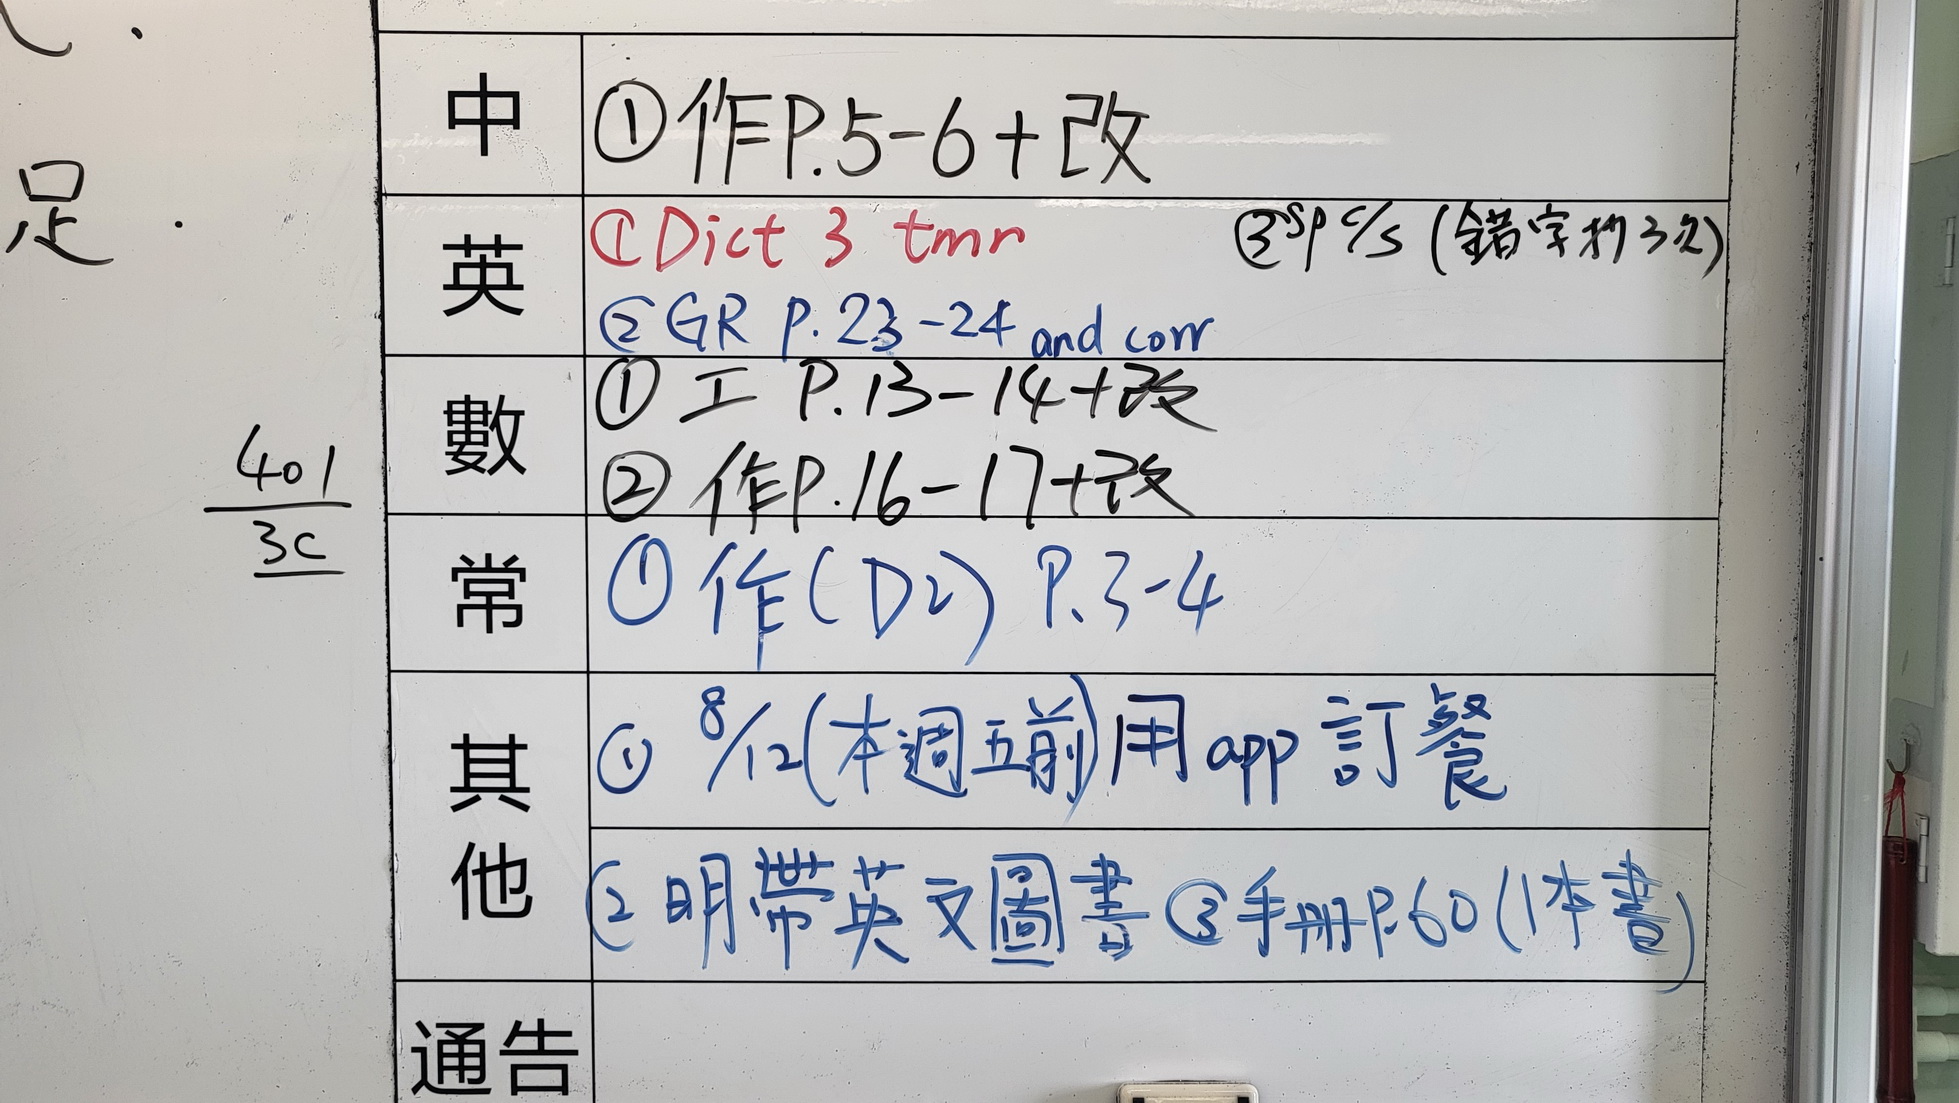 足.
中 ①作P.5-6+改
英 ①Dict 3 tmr ③sp c/s (錯字抄3次)
②GR p.23-24 and corr
數 ①工 P.13-14+改
②作P.16-17+改
401
3C
常 ①作(D2) P.3-4
其他 ① 8/12(本週五前)用app訂餐
② 明帶英文圖書 ③手冊P.60(1本書)
通告